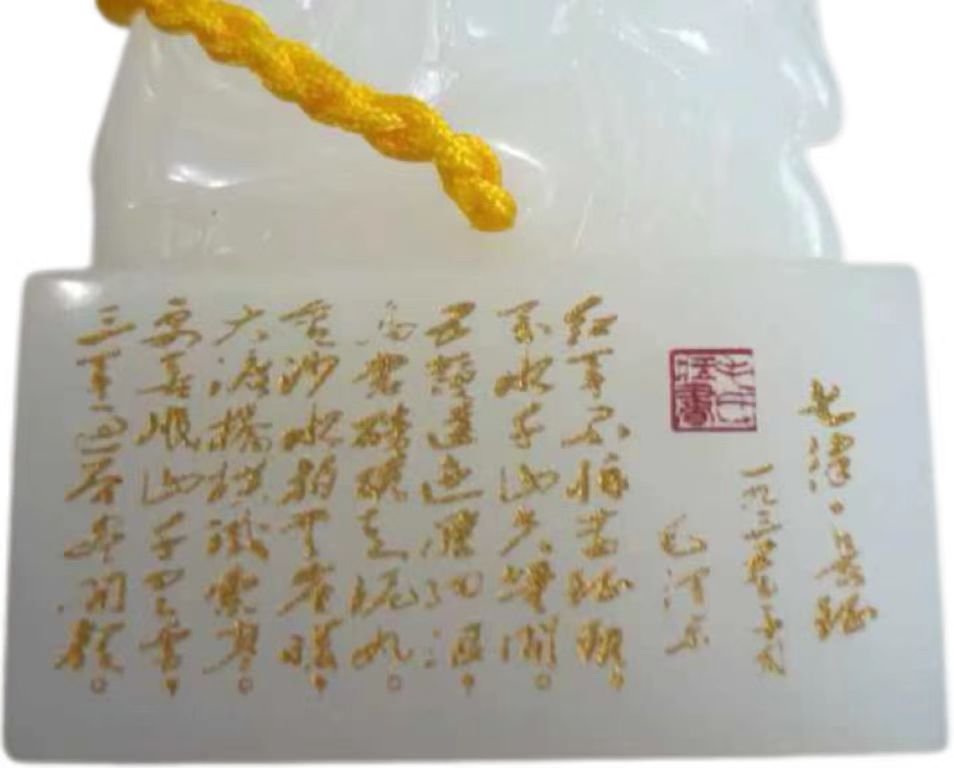 七律。长征
一九三五年十月
毛泽东
红军不怕远征难，
万水千山只等闲。
五岭逶迤腾细浪，
乌蒙磅礴走泥丸。
金沙水拍云崖暖，
大渡桥横铁索寒。
更喜岷山千里雪，
三军过后尽开颜。